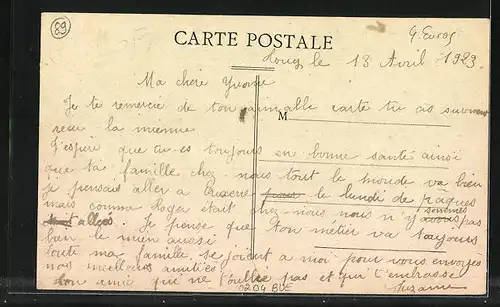 89
G. Euros
CARTE POSTALE
Loucq le 13 Avril 1923
Ma chère Yvonne
M
Je te remercie de ton aimable carte tu as surement
recu la mienne
J'espère que tu es toujours en bonne santé ainsi
que ta famille chez nous tout le monde va bien
je pensais aller a Auxerre pour le lundi de paques
mais comme Roger était chez nous nous n'y sommes pas
allées. Je pense que ton metier va toujours
bien le mien aussi
toute ma famille se joient a moi pour vous envoyer
nos meilleures amitiés
ton amie qui ne t'oublie pas et qui t'embrasse
Suzanne
0204 BUE